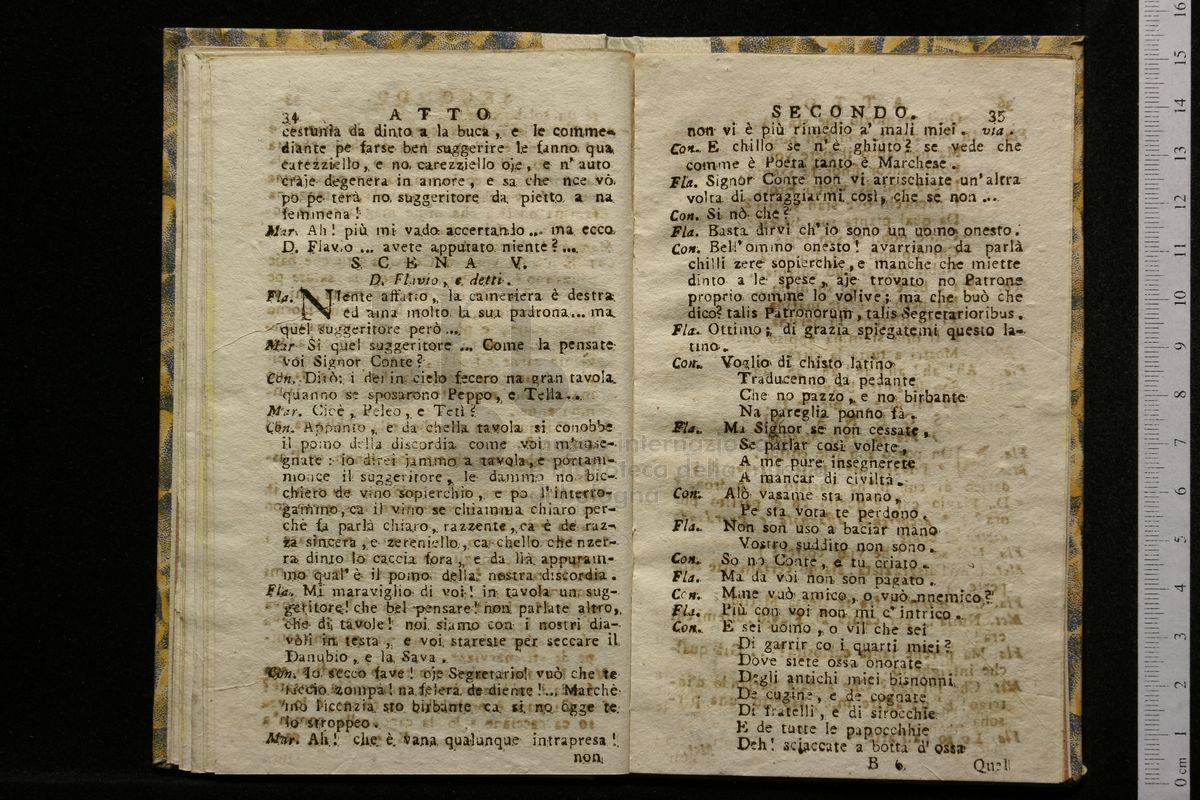 34 ATTO
cestunia da dinto a la buca, e le comme-
diante pe farse ben suggerire le fanno qua
carezziello, e no carezziello oje, e n' auto
craje degenera in amore, e sa che nce vò
po pe terà no suggeritore da pietto a na
femmena!
Mar. Ah! più mi vado accertando ... ma ecco
D. Flavio ... avete appurato niente? ...
SCENA V.
D. Flavio, e detti.
Fla. Niente affatto, la cameriera è destra
ed ama molto la sua padrona... ma
quel suggeritore però ...
Mar Si quel suggeritore ... Come la pensate
voi Signor Conte?
Con. Dirò: i dei in cielo fecero na gran tavola
quanno se sposarono Peppo, e Tella...
Mar. Cioè, Peleo, e Teti?
Con. Appunto, e da chella tavola si conobbe
il pomo della discordia come voi m'inse-
gnate: io direi jammo a tavola, e portam-
monce il suggeritore, le dammo no bic-
chiero de vino sopierchio, e po l'interro-
gammo, ca il vino se chiamma chiaro per-
chè fa parlà chiaro, razzente, ca è de raz-
za sincera, e zereniello, ca chello che nzer-
ra dinto lo caccia fora, e da llà appuram-
mo qual' è il pomo della nostra discordia.
Fla. Mi maraviglio di voi! in tavola un sug-
geritore! che bel pensare! non parlate altro,
che di tavole! noi siamo con i nostri dia-
voli in testa, e voi stareste per seccare il
Danubio, e la Sava.
Con. Io secco fave! oje Segretario! vuò che te
faccio zompà! na felera de diente!... Marchè
mò licenzia sto birbante ca si no ogge te
lo stroppeo.
Mar. Ah! che è vana qualunque intrapresa!
non
SECONDO. 35
non vi è più rimedio a' mali miei. via.
Con. E chillo se n'è ghiuto? se vede che
comme è Poeta tanto è Marchese.
Fla. Signor Conte non vi arrischiate un'altra
volta di otraggiarmi così, che se non ...
Con. Si nò che?
Fla. Basta dirvi ch'io sono un uomo onesto.
Con. Bell'ommo onesto! avarriano da parlà
chilli zere sopierchie, e manche che miette
dinto a le spese, aje trovato no Patrone
proprio comme lo volive; ma che buò che
dico? talis Patronorum, talis Segretarioribus.
Fla. Ottimo; di grazia spiegatemi questo la-
tino.
Con. Voglio di chisto latino
Traducenno da pedante
Che no pazzo, e no birbante
Na pareglia ponno fà.
Fla. Ma Signor se non cessate,
Se parlar così volete,
A me pure insegnerete
A mancar di civiltà.
Con. Alò vasame sta mano,
Pe sta vota te perdono.
Fla. Non son uso a baciar mano
Vostro suddito non sono.
Con. So no Conte, e tu criato.
Fla. Ma da voi non son pagato.
Con. Mme vuò amico, o vuò nnemico?
Fla. Più con voi non mi c'intrico.
Con. E sei uomo, o vil che sei
Di garrir co i quarti miei?
Dove siete ossa onorate
Degli antichi miei bisnonni
De cugine, e de cognate
Di fratelli, e di sirocchie
E de tutte le papocchhie
Deh! sciaccate a botta d'ossa
B 6 Quell